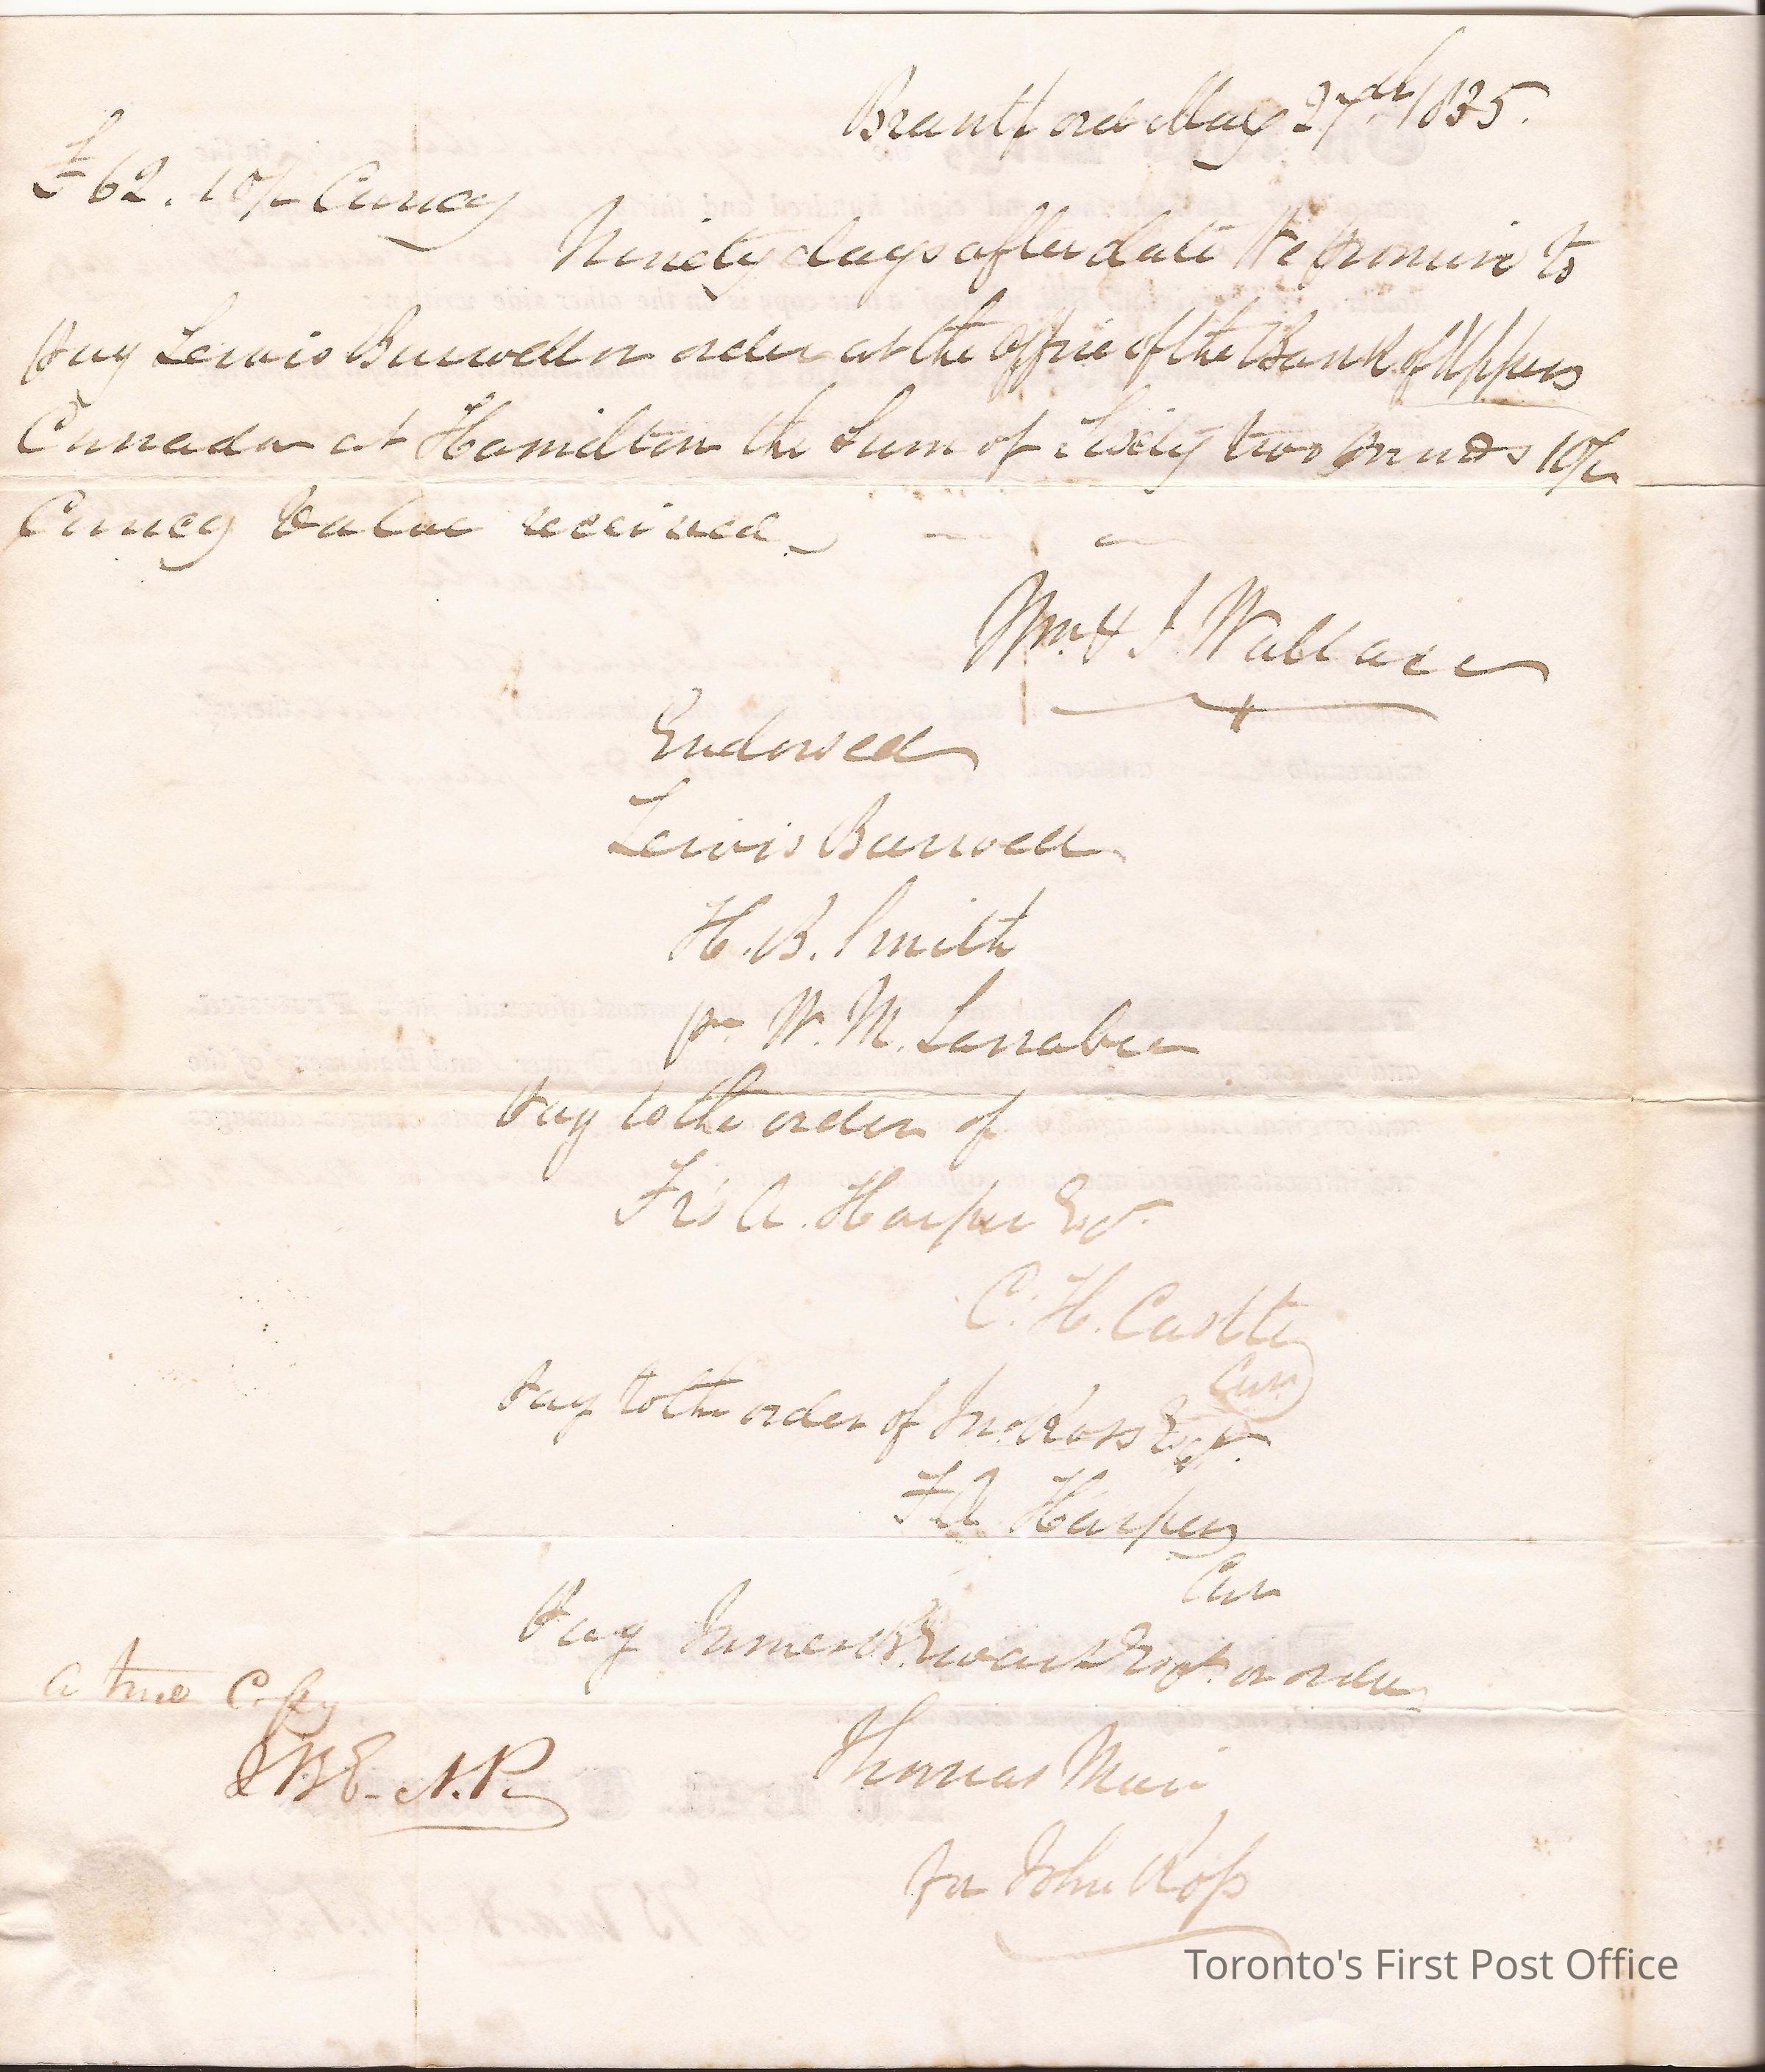 Brantford May 27th 1835.
£62.10/- Curncy
Ninety days after date We promise to
pay Lewis Burwell or order at the Office of the Bank of Upper
Canada at Hamilton the Sum of Sixty two pounds 10/-
Curncy Value received
Wm. & J. Wallace
Endorsed
Lewis Burwell
H. B. Smith
pr W. M. Larrabee
Pay to the order of
Frs A. Harper Esqr.
C. H. Castle
Casr
Pay to the order of Jno Ross Esqr.
F A Harper
Casr
Pay James B. Ewart Esqr. or order
Thomas Muir
for John Ross
a true Copy
J.B.E. N.P.
Toronto's First Post Office